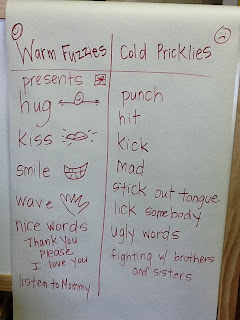 Warm Fuzzies
presents
hug
kiss
smile
wave
nice words
Thank You
please
I love you
listen to Mommy
Cold Pricklies
punch
hit
kick
mad
stick out tongue
lick somebody
ugly words
fighting w/ brothers
and sisters